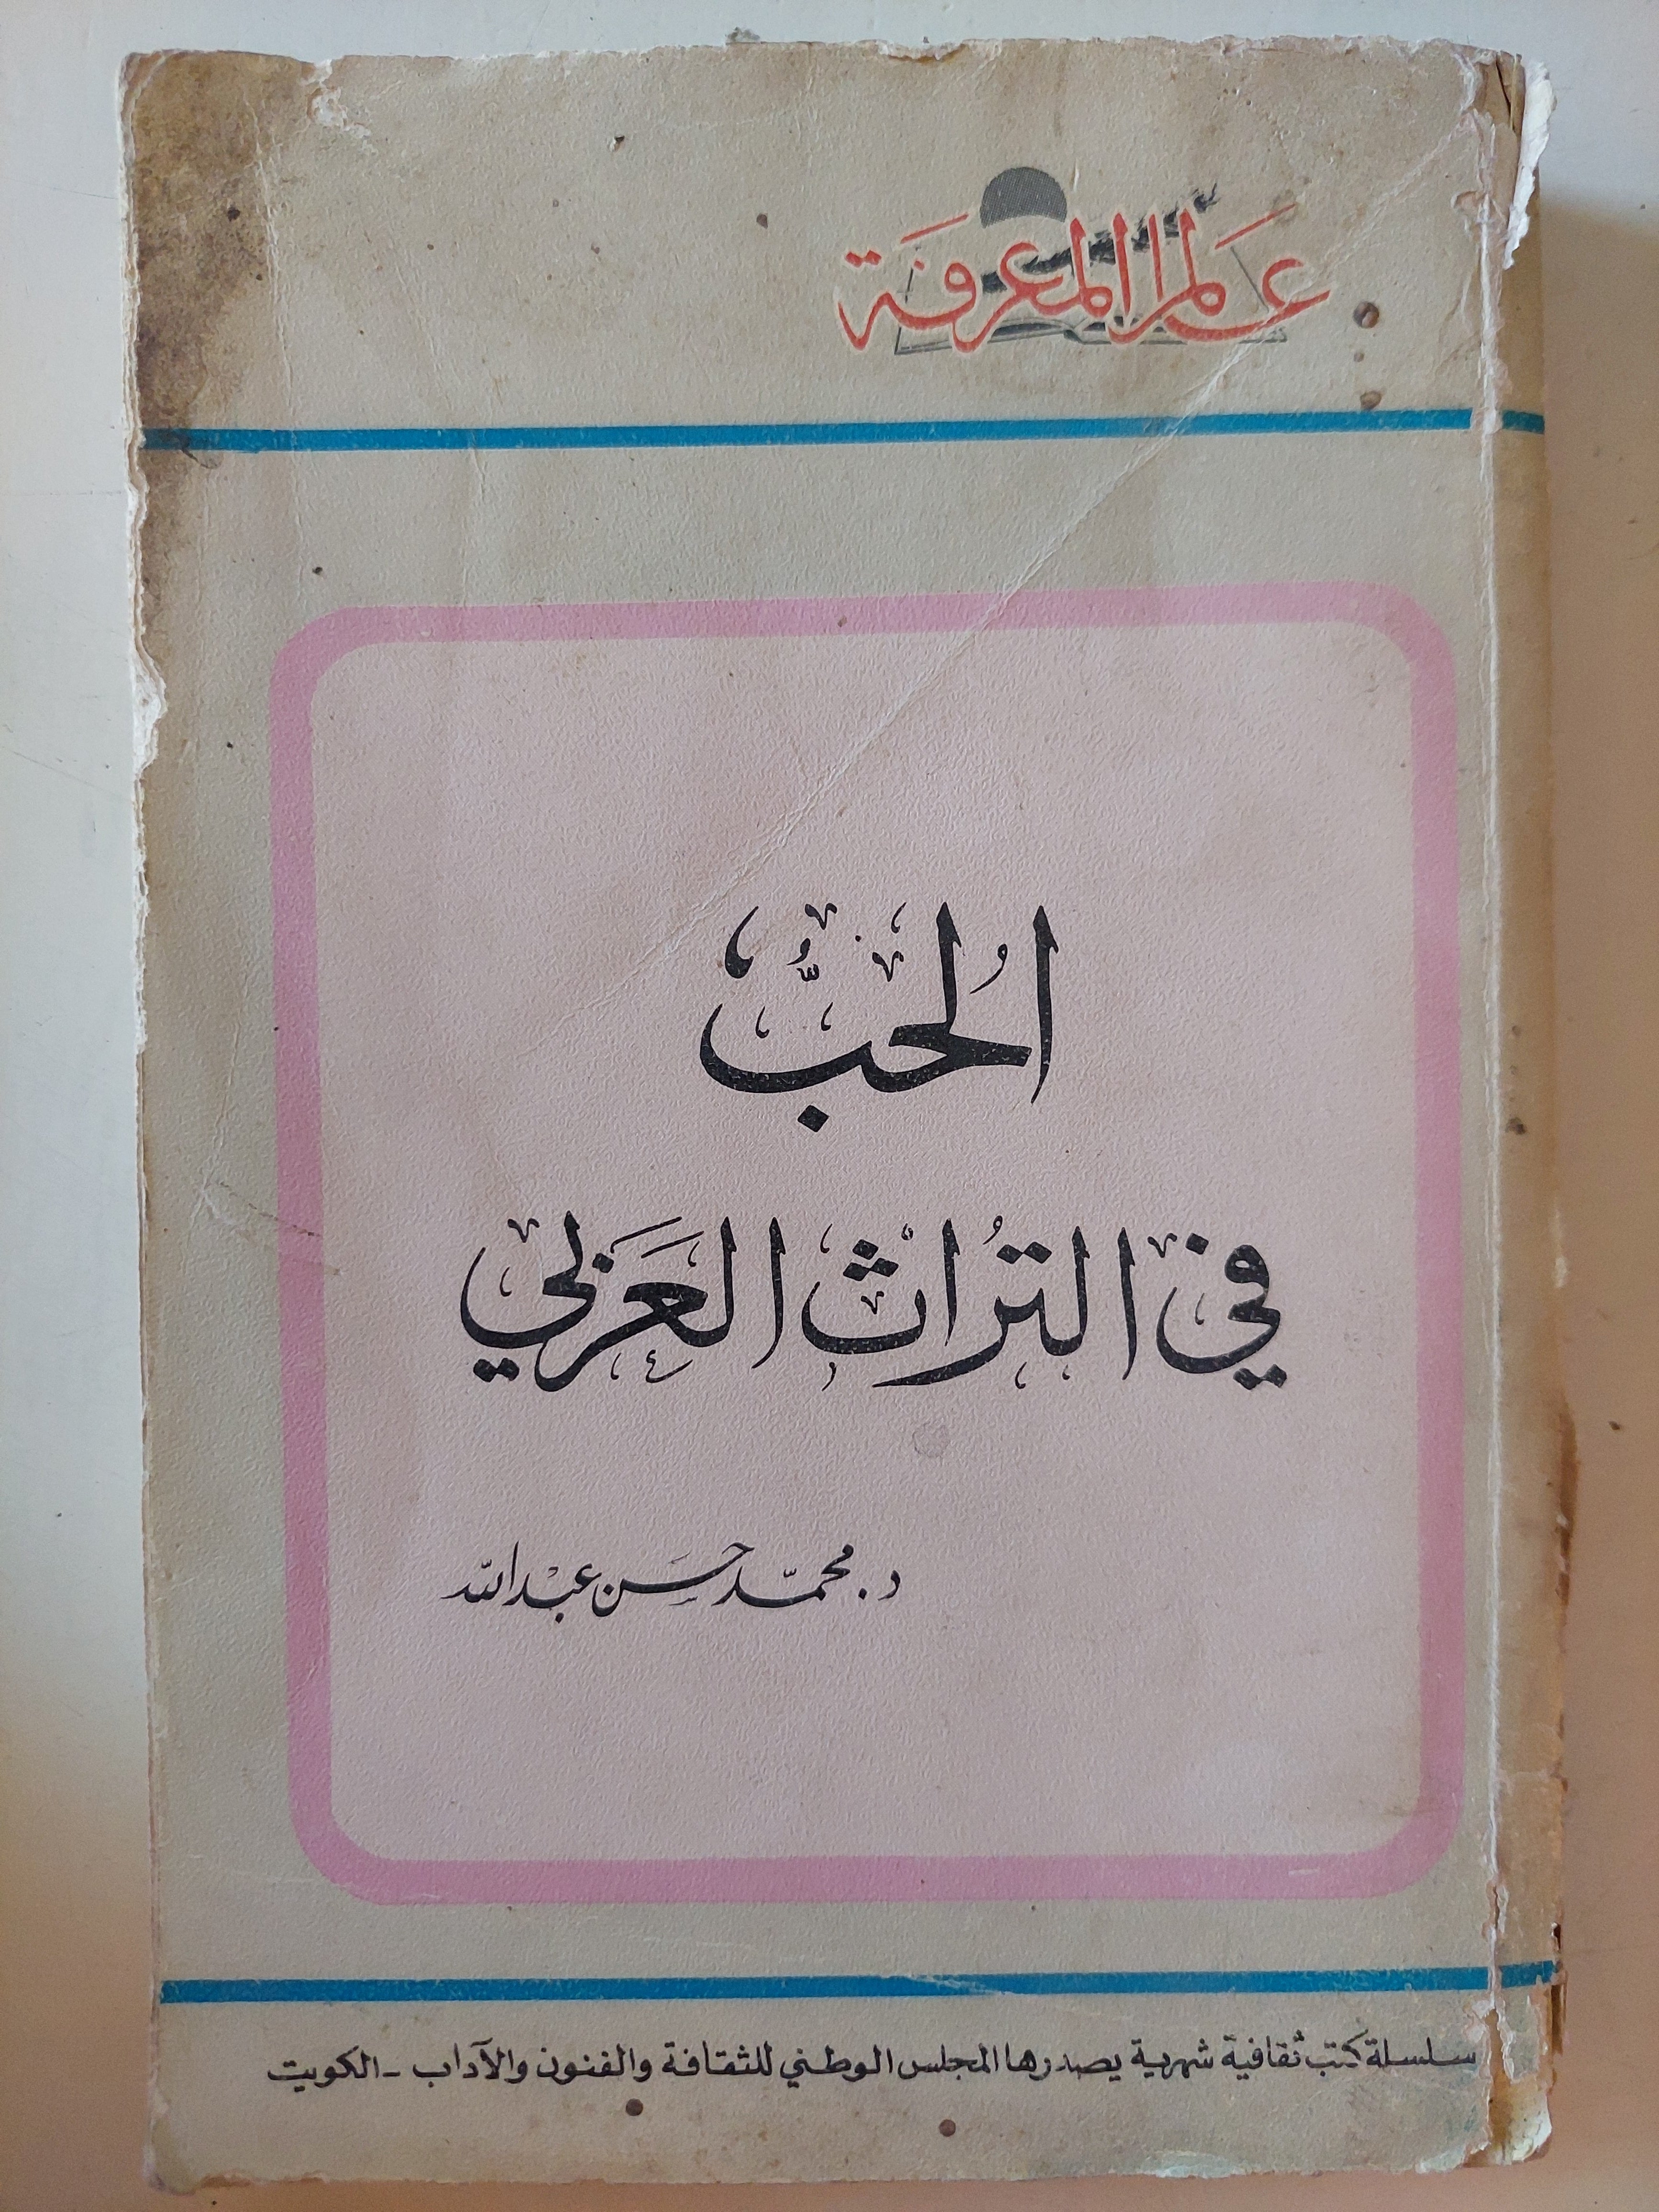 عالم المعرفة
الحب
في التراث العربي
د. محمد حسن عبد الله
سلسلة كتب ثقافية شهرية يصدرها المجلس الوطني للثقافة والفنون والآداب - الكويت